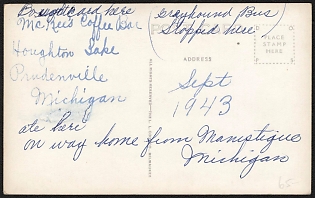 Bought card here
McRei's Coffee Bar
Houghton Lake
Prudenville
Michigan
Greyhound Bus
Stopped here
ADDRESS
PLACE
STAMP
HERE
Sept
1943
ate here
on way home from Manistique
Michigan